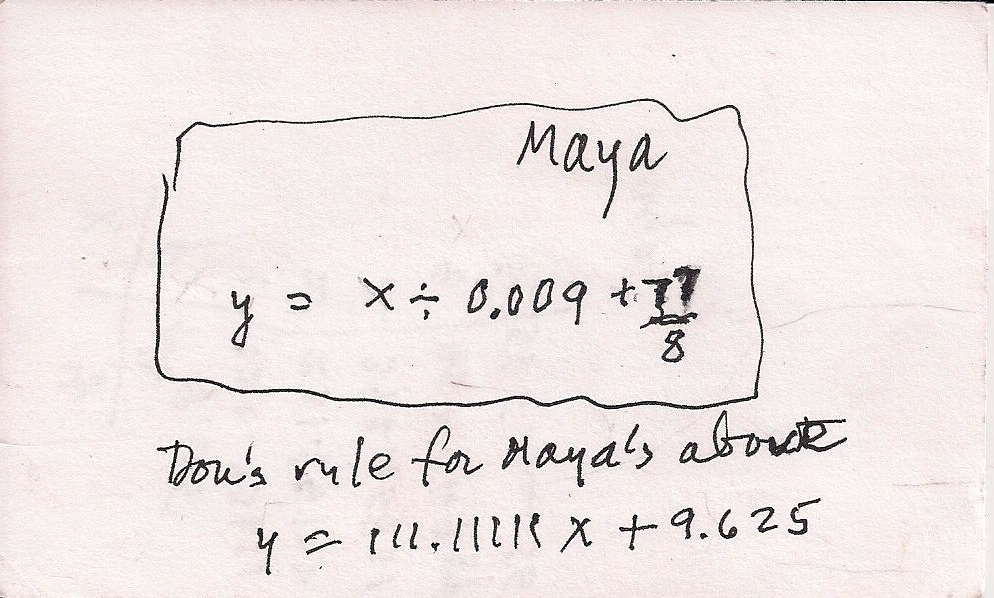 Maya
y = x ÷ 0.009 + 77/8
Don's rule for Maya's above
y = 111.11111 x + 9.625